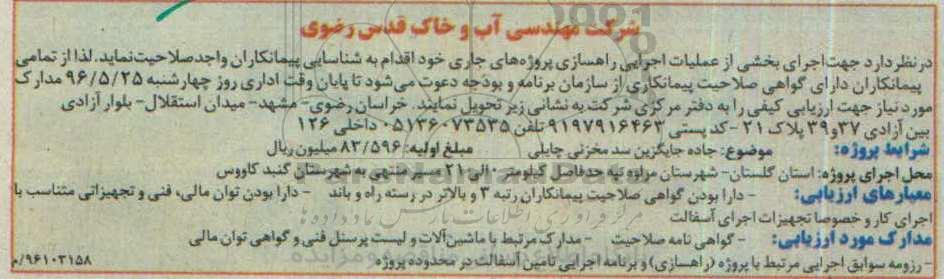 شرکت مهندسی آب و خاک قدس رضوی
در نظر دارد جهت اجرای بخشی از عملیات اجرایی راهسازی پروژه‌های جاری خود اقدام به شناسایی پیمانکاران واجد صلاحیت نماید. لذا از تمامی
پیمانکاران دارای گواهی صلاحیت پیمانکاری از سازمان برنامه و بودجه دعوت می‌شود تا پایان وقت اداری روز چهارشنبه ۹۶/۵/۲۵ مدارک
مورد نیاز جهت ارزیابی کیفی را به دفتر مرکزی شرکت به نشانی زیر تحویل نمایند. خراسان رضوی- مشهد- میدان استقلال- بلوار آزادی
بین آزادی ۳۷ و ۳۹ پلاک ۲۱ -کد پستی ۹۱۹۷۹۱۶۴۶۳ تلفن ۰۵۱۳۶۰۷۳۵۳۵ داخلی ۱۲۶
شرایط پروژه: موضوع: جاده جایگزین سد مخزنی چایلی مبلغ اولیه: ۸۳/۵۹۶ میلیون ریال
محل اجرای پروژه: استان گلستان- شهرستان مراوه تپه حدفاصل کیلومتر ۰ الی ۲۱ مسیر منتهی به شهرستان گنبد کاووس
معیارهای ارزیابی: - دارا بودن گواهی صلاحیت پیمانکاران رتبه ۳ و بالاتر در رسته راه و باند - دارا بودن توان مالی، فنی و تجهیزاتی متناسب با
اجرای کار و خصوصا تجهیزات اجرای آسفالت
مدارک مورد ارزیابی: - گواهی نامه صلاحیت - مدارک مرتبط با ماشین‌آلات و لیست پرسنل فنی و گواهی توان مالی
- رزومه سوابق اجرایی مرتبط با پروژه (راهسازی) و برنامه اجرایی تامین آسفالت در محدوده پروژه
۹۶۱۰۳۱۵۸/م